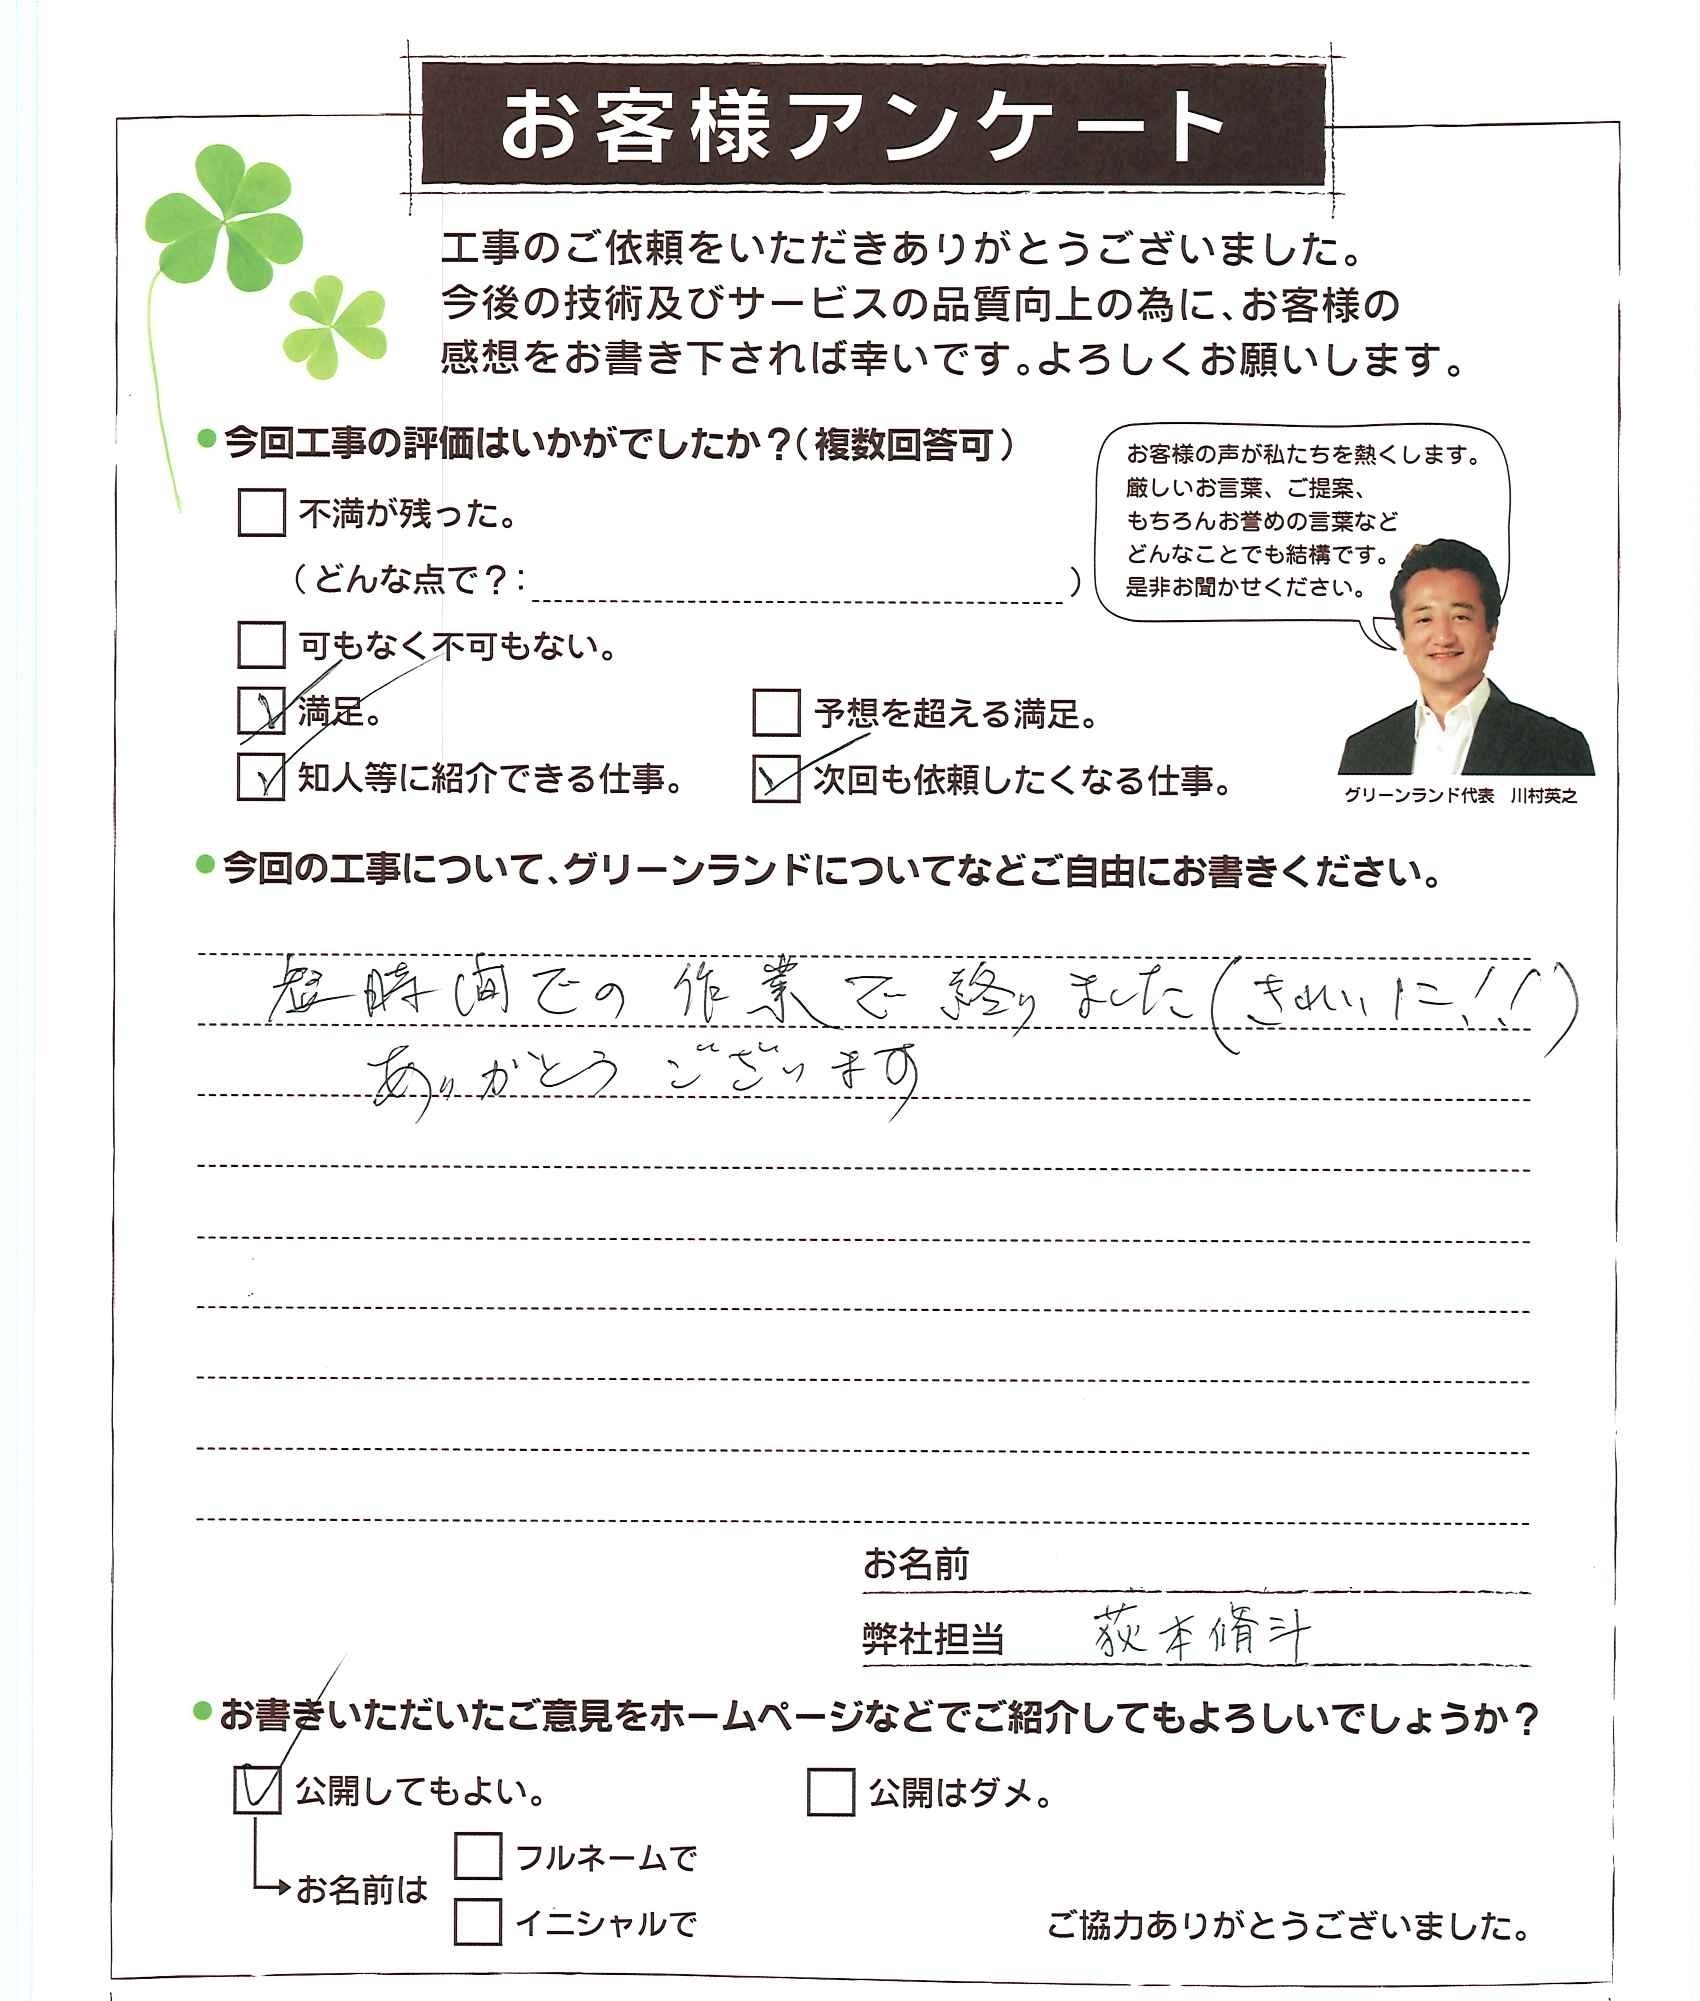 お客様アンケート
工事のご依頼をいただきありがとうございました。
今後の技術及びサービスの品質向上の為に、お客様の
感想をお書き下されば幸いです。よろしくお願いします。
●今回工事の評価はいかがでしたか？（複数回答可）
お客様の声が私たちを熱くします。
厳しいお言葉、ご提案、
もちろんお誉めの言葉など
どんなことでも結構です。
是非お聞かせください。
不満が残った。
（どんな点で？：　）
可もなく不可もない。
満足。
予想を超える満足。
知人等に紹介できる仕事。
次回も依頼したくなる仕事。
グリーンランド代表　川村英之
●今回の工事について、グリーンランドについてなどご自由にお書きください。
短時間での作業で終りました（きれいに！！）
ありがとうございます
お名前
弊社担当　荻本脩斗
●お書きいただいたご意見をホームページなどでご紹介してもよろしいでしょうか？
公開してもよい。
公開はダメ。
フルネームで
お名前は
イニシャルで
ご協力ありがとうございました。